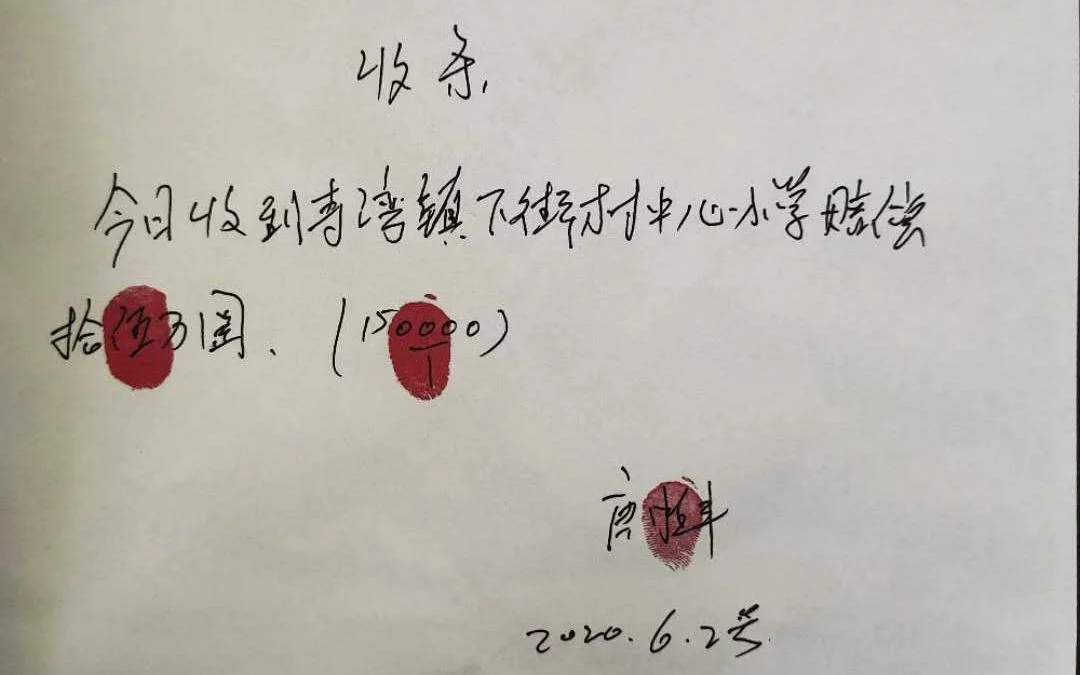 收条
今日收到青湾镇下街村中心小学赔偿
拾伍万圆、(150000)
唐
2020.6.2号